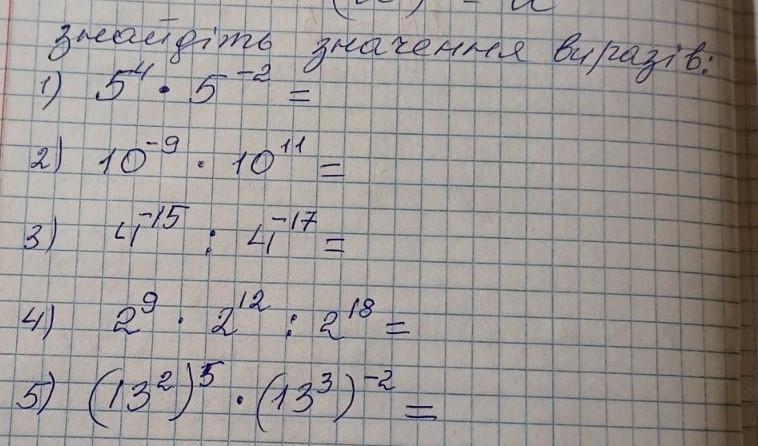 знайдіть значення виразів:
1) 5⁴ · 5⁻² =
2) 10⁻⁹ · 10¹¹ =
3) 4⁻¹⁵ : 4⁻¹⁷ =
4) 2⁹ · 2¹² : 2¹⁸ =
5) (13²)⁵ · (13³)⁻² =